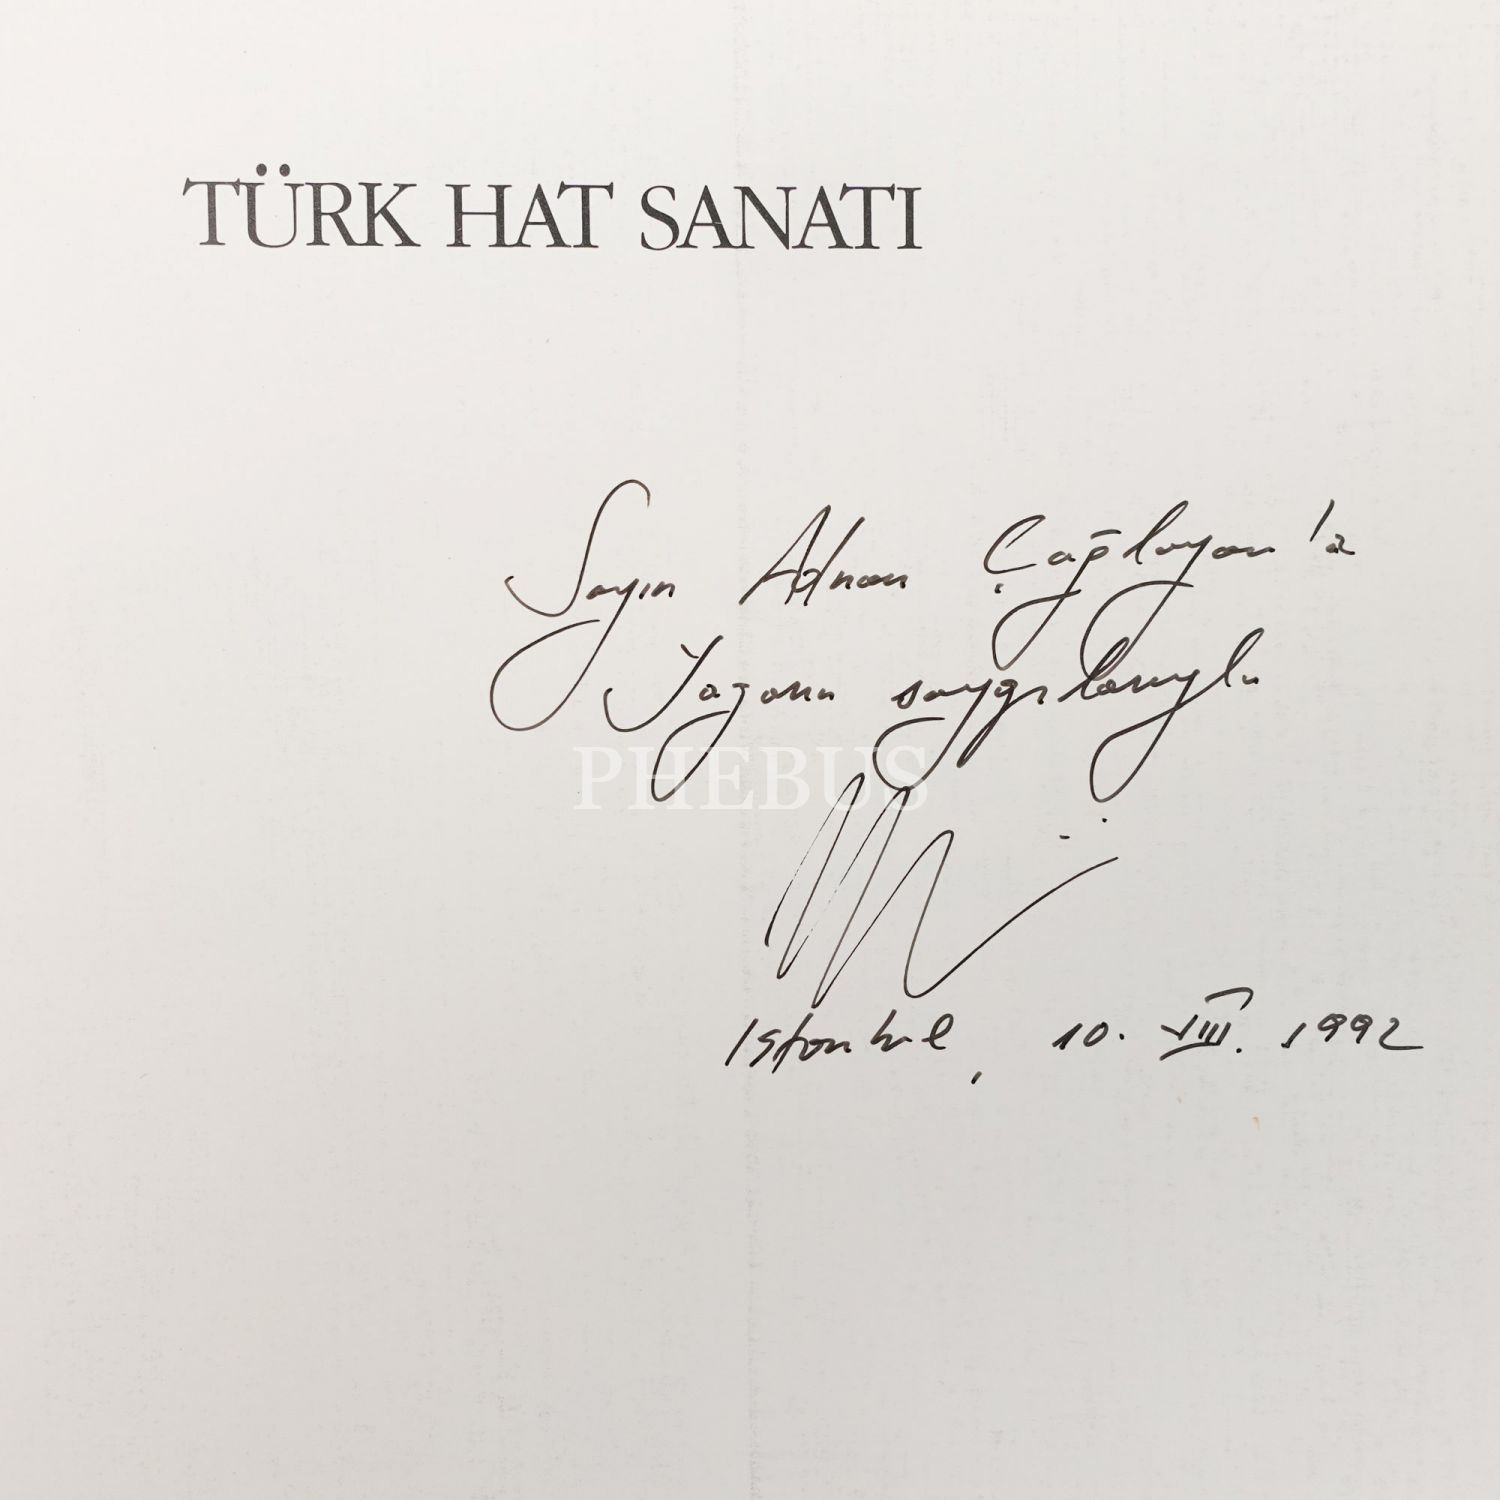 TÜRK HAT SANATI
Sayın Adnan Çağlayan'a
saygılarıyla
PHEBUS
Istanbul, 10. VIII. 1992